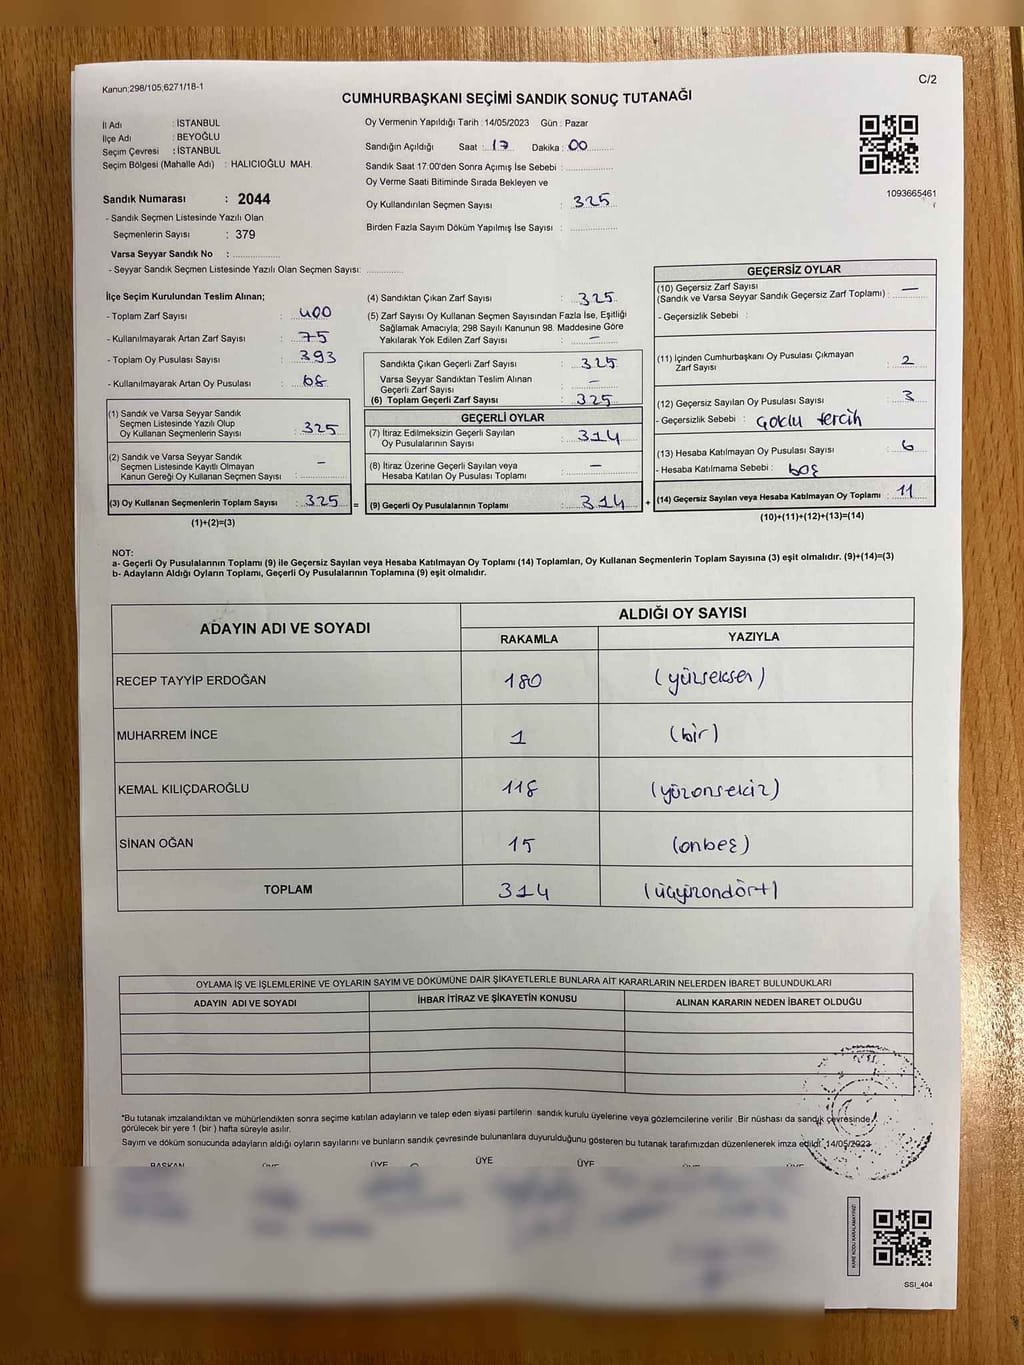 Kanun;298/105;6271/18-1
C/2
CUMHURBAŞKANI SEÇİMİ SANDIK SONUÇ TUTANAĞI
İl Adı : İSTANBUL
İlçe Adı : BEYOĞLU
Seçim Çevresi : İSTANBUL
Seçim Bölgesi (Mahalle Adı) : HALICIOĞLU MAH.
Sandık Numarası : 2044
- Sandık Seçmen Listesinde Yazılı Olan
Seçmenlerin Sayısı : 379
Varsa Seyyar Sandık No : ..............
- Seyyar Sandık Seçmen Listesinde Yazılı Olan Seçmen Sayısı: ............
Oy Vermenin Yapıldığı Tarih : 14/05/2023 Gün : Pazar
Sandığın Açıldığı Saat : 17 Dakika : 00
Sandık Saat 17:00'den Sonra Açımış İse Sebebi : ..............
Oy Verme Saati Bitiminde Sırada Bekleyen ve
Oy Kullandırılan Seçmen Sayısı : 325
Birden Fazla Sayım Döküm Yapılmış İse Sayısı : ..............
1093665461
İlçe Seçim Kurulundan Teslim Alınan;
- Toplam Zarf Sayısı : 400
- Kullanılmayarak Artan Zarf Sayısı : 75
- Toplam Oy Pusulası Sayısı : 393
- Kullanılmayarak Artan Oy Pusulası : 68
(1) Sandık ve Varsa Seyyar Sandık
Seçmen Listesinde Yazılı Olup
Oy Kullanan Seçmenlerin Sayısı : 325
(2) Sandık ve Varsa Seyyar Sandık
Seçmen Listesinde Kayıtlı Olmayan
Kanun Gereği Oy Kullanan Seçmen Sayısı : –
(3) Oy Kullanan Seçmenlerin Toplam Sayısı : 325 =
(1)+(2)=(3)
(4) Sandıktan Çıkan Zarf Sayısı : 325
(5) Zarf Sayısı Oy Kullanan Seçmen Sayısından Fazla İse, Eşitliği
Sağlamak Amacıyla; 298 Sayılı Kanunun 98. Maddesine Göre
Yakılarak Yok Edilen Zarf Sayısı : –
Sandıkta Çıkan Geçerli Zarf Sayısı : 325
Varsa Seyyar Sandıktan Teslim Alınan
Geçerli Zarf Sayısı : –
(6) Toplam Geçerli Zarf Sayısı : 325
GEÇERLİ OYLAR
(7) İtiraz Edilmeksizin Geçerli Sayılan
Oy Pusulalarının Sayısı : 314
(8) İtiraz Üzerine Geçerli Sayılan veya
Hesaba Katılan Oy Pusulası Toplamı : –
(9) Geçerli Oy Pusulalarının Toplamı : 314 +
GEÇERSİZ OYLAR
(10) Geçersiz Zarf Sayısı
(Sandık ve Varsa Seyyar Sandık Geçersiz Zarf Toplamı) : –
- Geçersizlik Sebebi :
(11) İçinden Cumhurbaşkanı Oy Pusulası Çıkmayan
Zarf Sayısı : 2
(12) Geçersiz Sayılan Oy Pusulası Sayısı : 3
- Geçersizlik Sebebi : Çoklu tercih
(13) Hesaba Katılmayan Oy Pusulası Sayısı : 6
- Hesaba Katılmama Sebebi : boş
(14) Geçersiz Sayılan veya Hesaba Katılmayan Oy Toplamı : 11
(10)+(11)+(12)+(13)=(14)
NOT:
a- Geçerli Oy Pusulalarının Toplamı (9) ile Geçersiz Sayılan veya Hesaba Katılmayan Oy Toplamı (14) Toplamları, Oy Kullanan Seçmenlerin Toplam Sayısına (3) eşit olmalıdır. (9)+(14)=(3)
b- Adayların Aldığı Oyların Toplamı, Geçerli Oy Pusulalarının Toplamına (9) eşit olmalıdır.
ADAYIN ADI VE SOYADI ALDIĞI OY SAYISI
RAKAMLA YAZIYLA
RECEP TAYYİP ERDOĞAN 180 (yüzseksen)
MUHARREM İNCE 1 (bir)
KEMAL KILIÇDAROĞLU 118 (yüzonsekiz)
SİNAN OĞAN 15 (onbeş)
TOPLAM 314 (üçyüzondört)
OYLAMA İŞ VE İŞLEMLERİNE VE OYLARIN SAYIM VE DÖKÜMÜNE DAİR ŞİKAYETLERLE BUNLARA AİT KARARLARIN NELERDEN İBARET BULUNDUKLARI
ADAYIN ADI VE SOYADI İHBAR İTİRAZ VE ŞİKAYETİN KONUSU ALINAN KARARIN NEDEN İBARET OLDUĞU
*Bu tutanak imzalandıktan ve mühürlendikten sonra seçime katılan adayların ve talep eden siyasi partilerin sandık kurulu üyelerine veya gözlemcilerine verilir. Bir nüshası da sandık çevresinde
görülecek bir yere 1 (bir ) hafta süreyle asılır.
Sayım ve döküm sonucunda adayların aldığı oyların sayılarını ve bunların sandık çevresinde bulunanlara duyurulduğunu gösteren bu tutanak tarafımızdan düzenlenerek imza edildi. 14/05/2023
BAŞKAN ÜYE ÜYE ÜYE ÜYE
KARE KODU KARALAMAYINIZ!
SSI_404